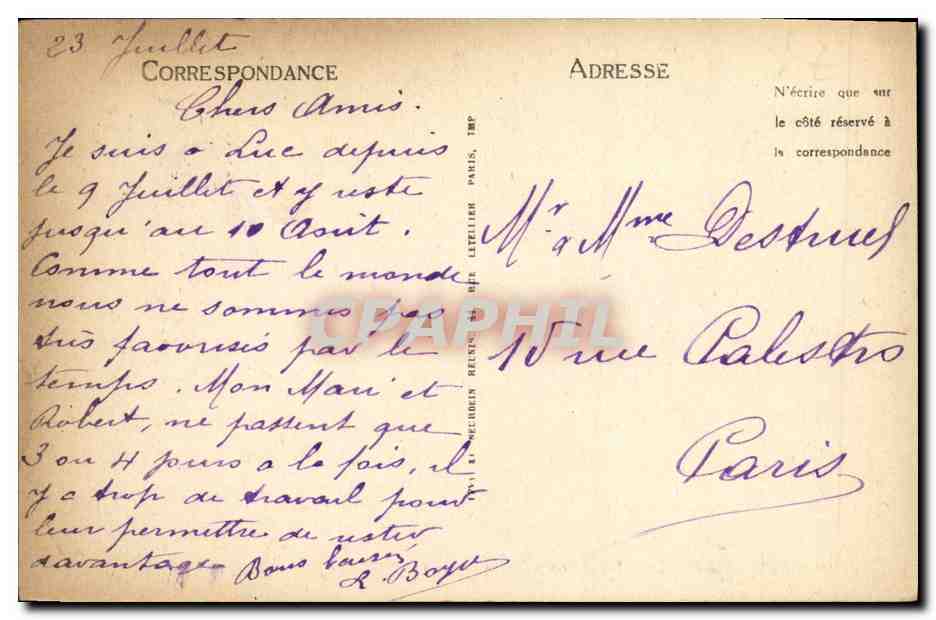 23 Juillet
CORRESPONDANCE
Chers Amis.
Je suis a Luc depuis
le 9 Juillet et y reste
jusqu'au 10 Août.
Comme tout le monde
nous ne sommes pas
très favorisés par le
temps. Mon Mari et
Robert, ne passent que
3 ou 4 jours a la fois, il
y a trop de travail pour
leur permettre de rester
davantage Bons baisers
ADRESSE
N'écrire que sur
le côté réservé à
la correspondance
Mr & Mme
rue Palestro
Paris
NEURDEIN RÉUNIS RUE LETELLIER PARIS, IMP
CPAPHIL